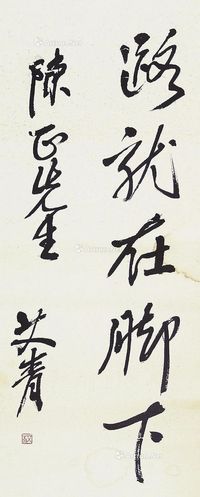 路就在脚下
陈正先生
艾青